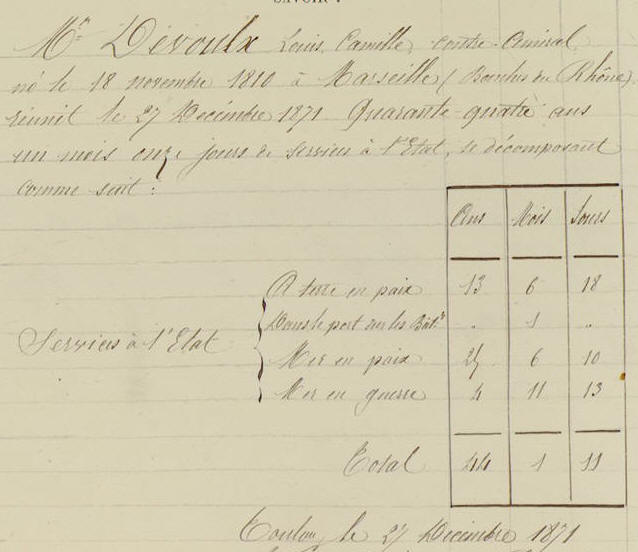 SAVOIR :
Mr. Dévoulx Louis, Camille, Contre-Amiral,
né le 18 novembre 1810 à Marseille (Bouches du Rhône)
réunit le 27 Décembre 1871 Quarante-quatre ans
un mois onze jours de services à l'Etat, se décomposant
comme suit :
Ans Mois Jours
A terre en paix 13 6 18
Dans le port sur les Bâts. " 1 "
Services à l'Etat
Mer en paix 25 6 10
Mer en guerre 4 11 13
Total 44 1 11
Toulon, le 27 Décembre 1871